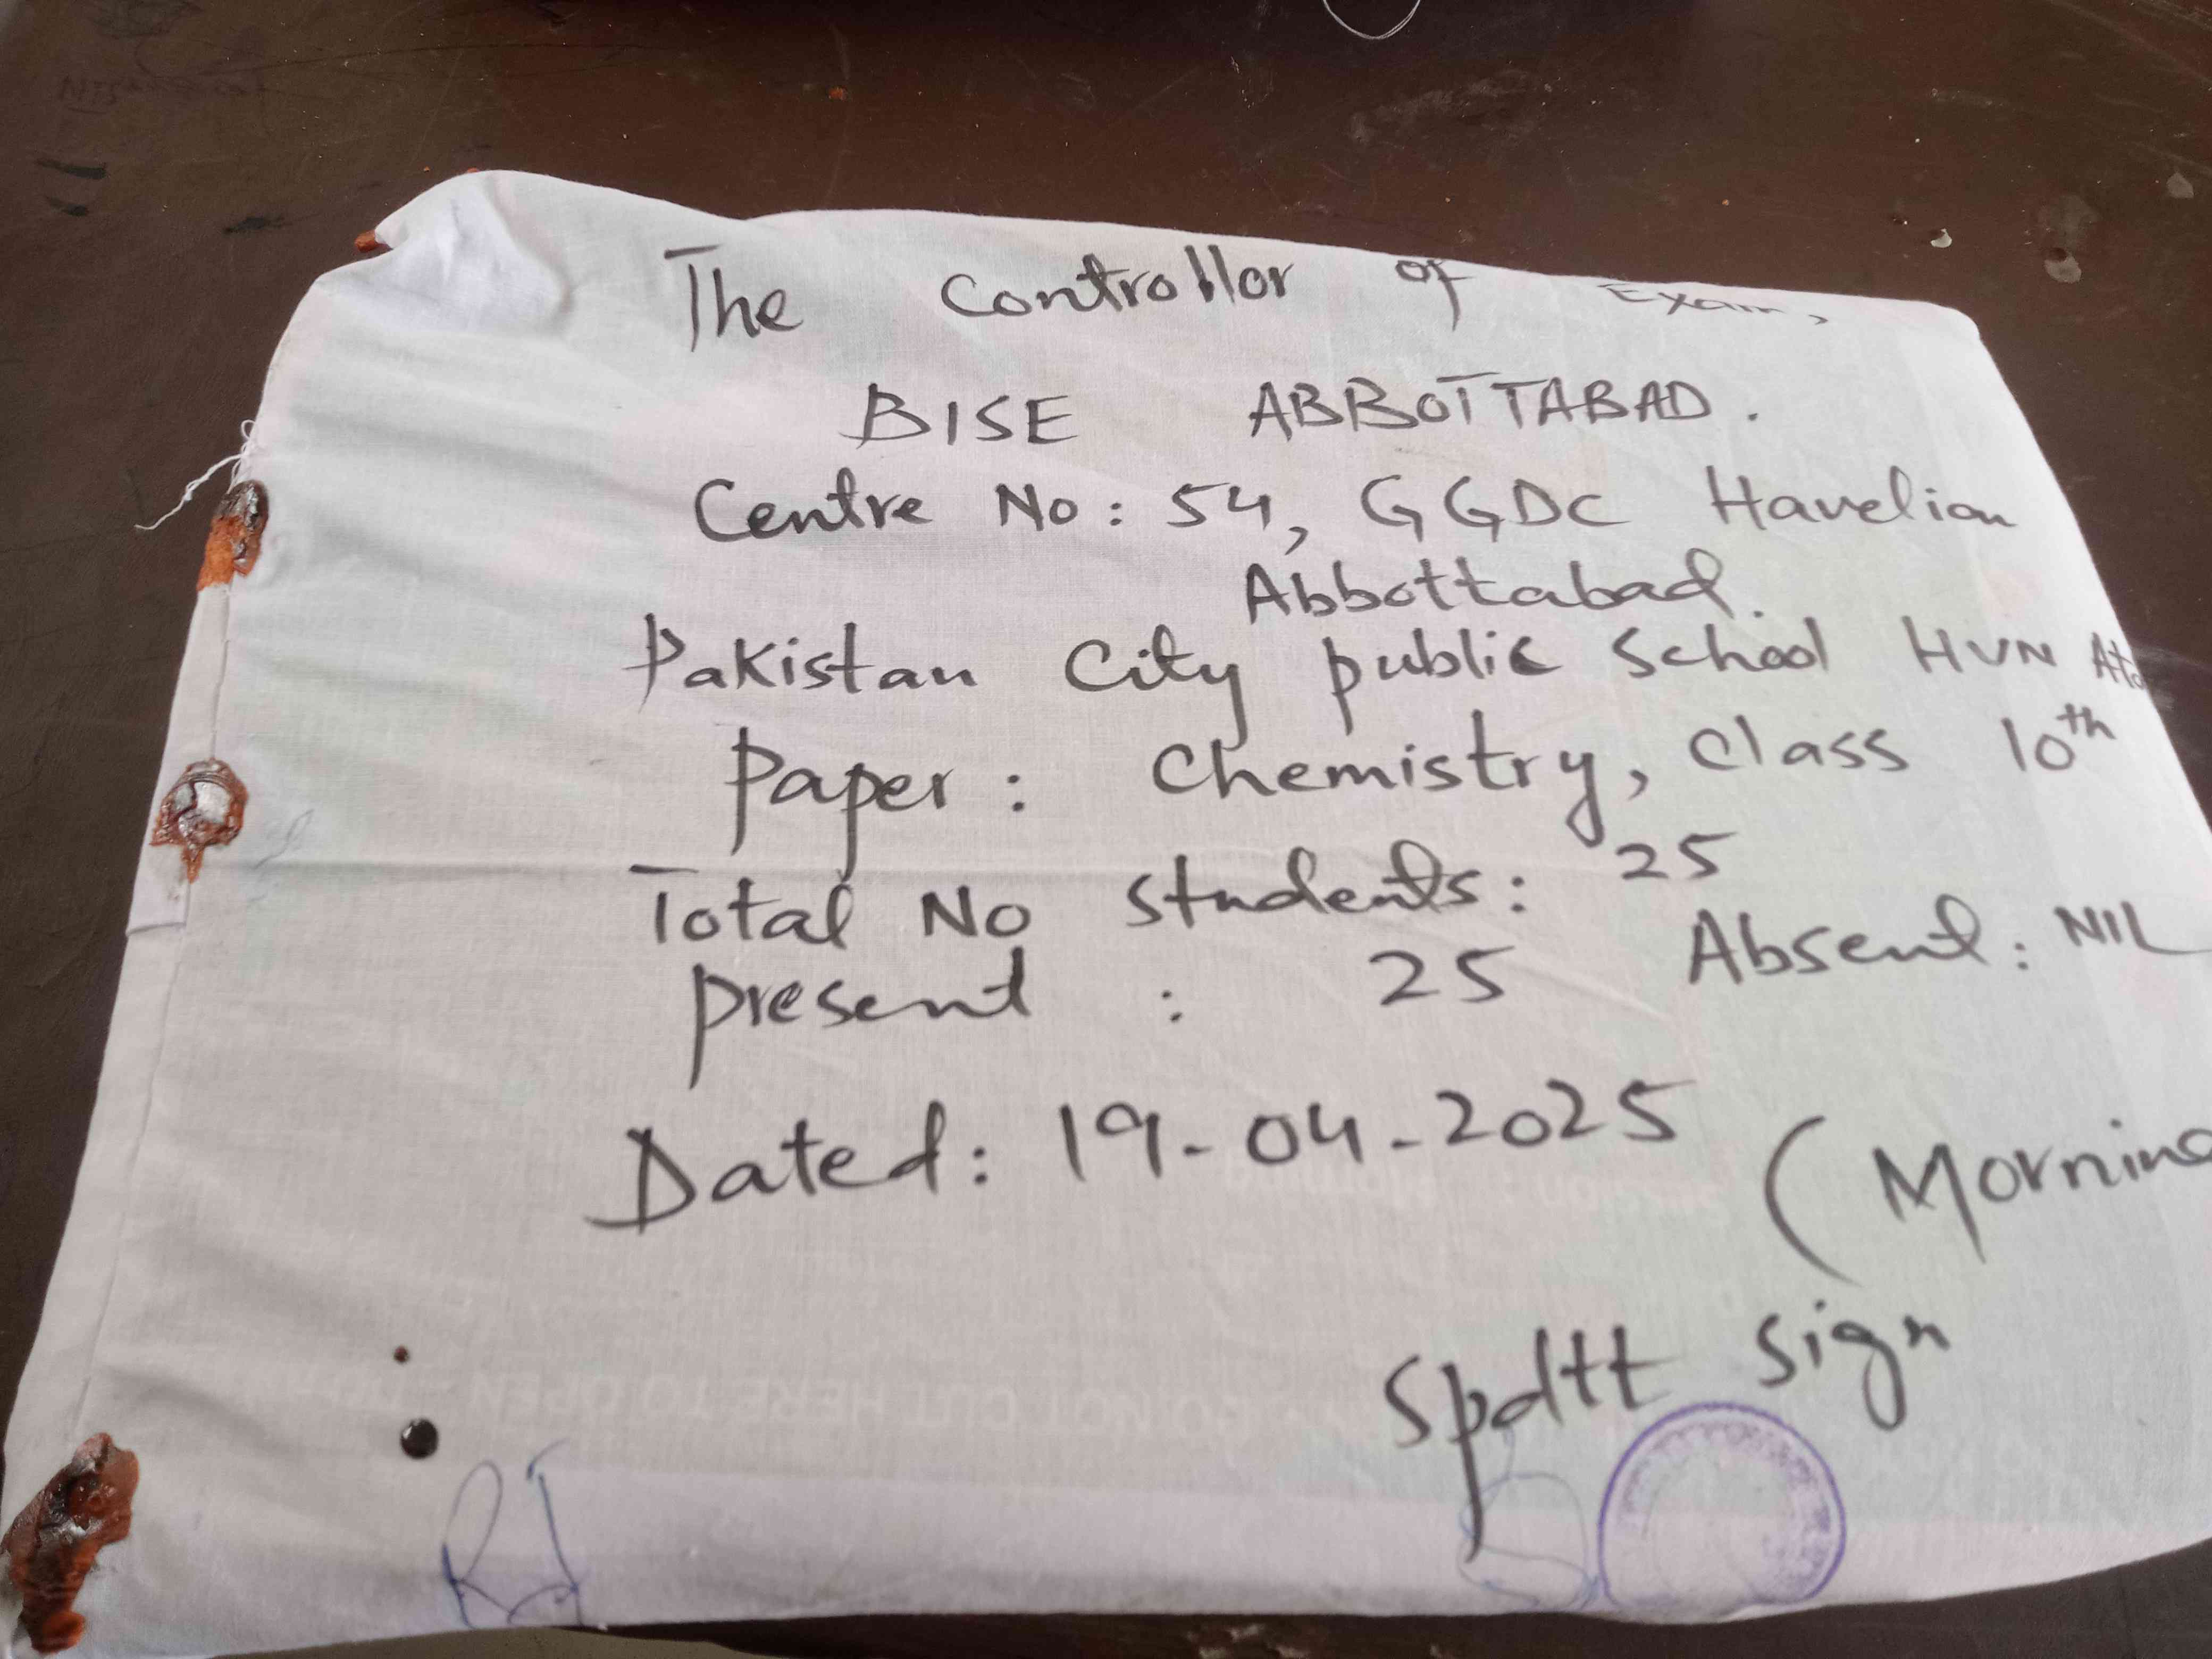 The Controllor of Exam,
BISE ABBOTTABAD.
Centre No: 54, GGDC Havelian
Abbottabad.
Pakistan City public School HVN Atd
Paper: Chemistry, Class 10th
Total No students: 25
present : 25 Absent: NIL
Dated: 19-04-2025 (Morning
Spdtt Sign
DO NOT CUT HERE TO OPEN